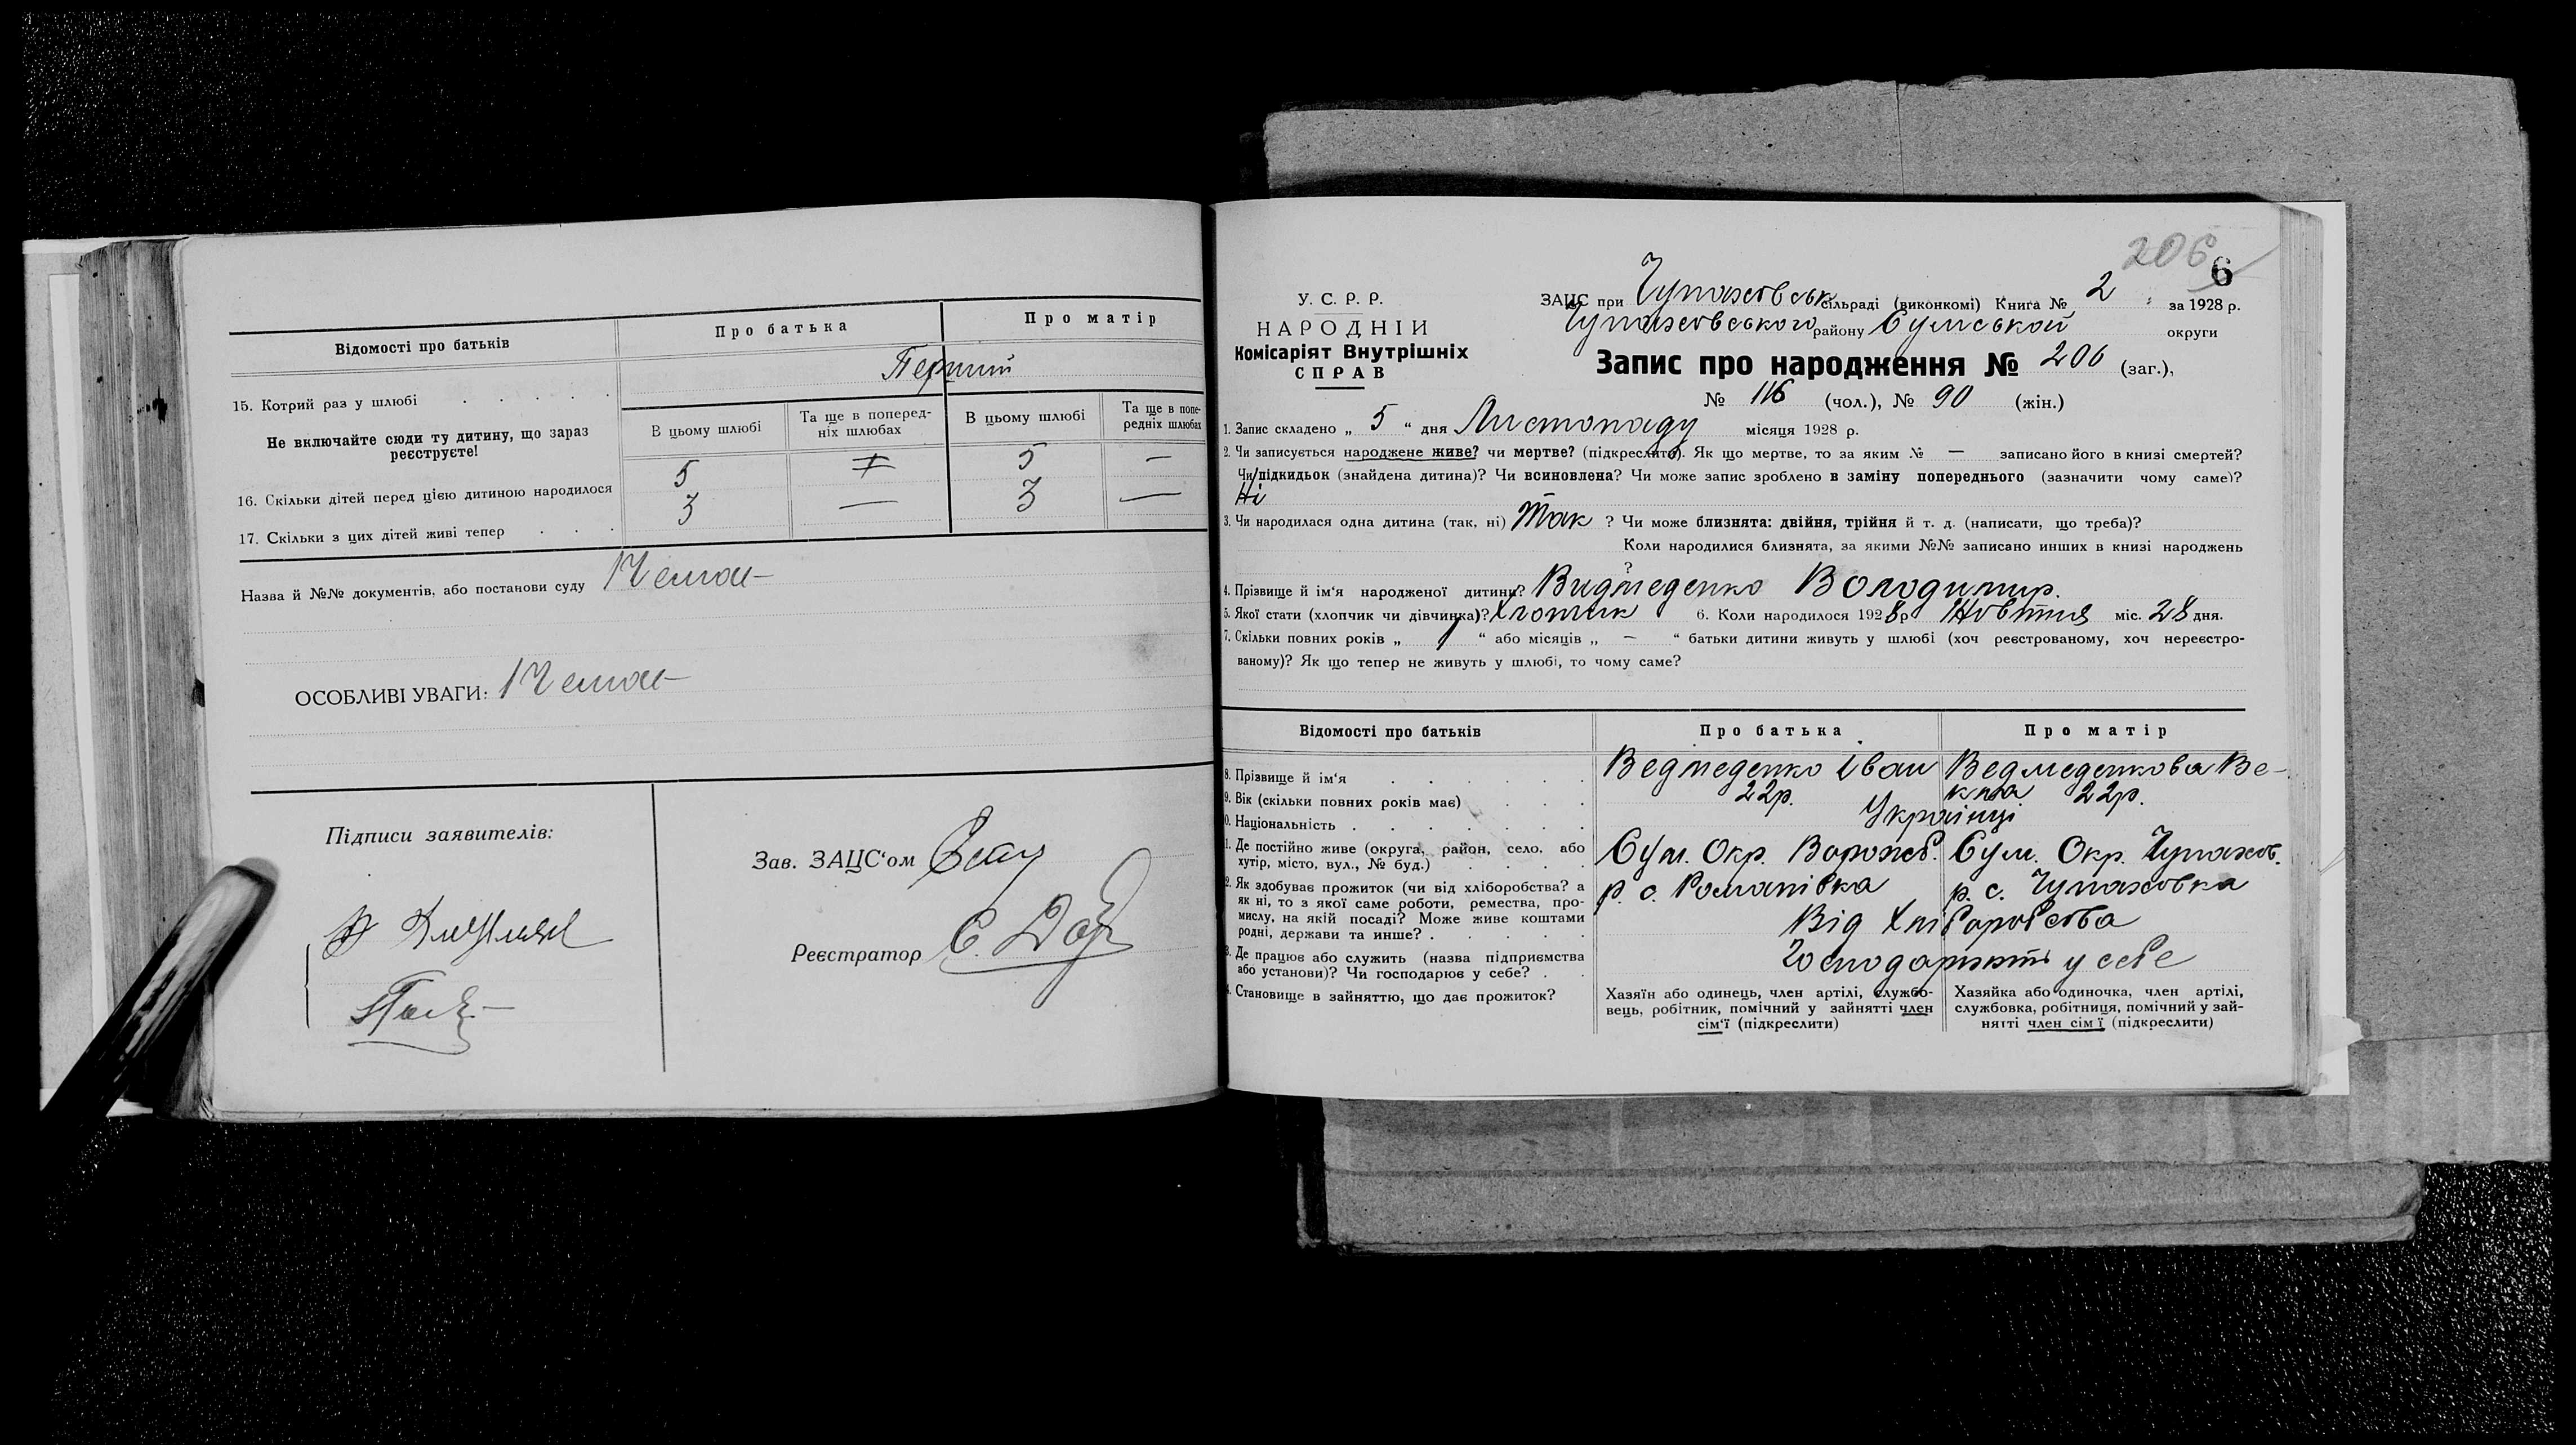 Відомості про батьків
Про батька
Про матір
15. Котрий раз у шлюбі
Перший
Не включайте сюди ту дитину, що зараз
реєструєте!
В цьому шлюбі
Та ще в поперед-
ніх шлюбах
В цьому шлюбі
Та ще в попе-
редніх шлюбах
16. Скільки дітей перед цією дитиною народилося
5
5 —
17. Скільки з цих дітей живі тепер
3 — 3 —
Назва й №№ документів, або постанови суду Немає
ОСОБЛИВІ УВАГИ: Немає
Підписи заявителів:
Зав. ЗАЦС'ом
Реєстратор
206
6
У. С. Р. Р.
НАРОДНІЙ
Комісаріят Внутрішніх
СПРАВ
ЗАЦС при Чупаховськ сільраді (виконкомі) Книга № 2 за 1928 р.
Чупаховського району Сумської округи
Запис про народження № 206 (заг.),
№ 116 (чол.), № 90 (жін.)
1. Запис складено „ 5 “ дня Листопаду місяця 1928 р.
2. Чи записується народжене живе? чи мертве? (підкреслити). Як що мертве, то за яким № — записано його в книзі смертей?
Чи підкидьок (знайдена дитина)? Чи всиновлена? Чи може запис зроблено в заміну попереднього (зазначити чому саме)?
Ні
3. Чи народилася одна дитина (так, ні) Так ? Чи може близнята: двійня, трійня й т. д. (написати, що треба)?
Коли народилися близнята, за якими №№ записано инших в книзі народжень
?
4. Прізвище й ім'я народженої дитини? Видмеденко Володимир.
5. Якої стати (хлопчик чи дівчинка)? Хлопчик 6. Коли народилося 1928 р Жовтня міс. 28 дня.
7. Скільки повних років „ 1 “ або місяців „ — “ батьки дитини живуть у шлюбі (хоч реєстрованому, хоч нереєстро-
ваному)? Як що тепер не живуть у шлюбі, то чому саме?
Відомості про батьків
Про батька
Про матір
8. Прізвище й ім'я
Ведмеденко Іван
Ведмеденкова Ве-
кла
9. Вік (скільки повних років має)
22р.
22р.
0. Національність
Українці
1. Де постійно живе (округа, район, село, або
хутір, місто, вул., № буд.)
Сум. Окр. Ворожб.
р. с. Романівка
Сум. Окр. Чупахов.
р. с. Чупаховка
2. Як здобуває прожиток (чи від хліборобства? а
як ні, то з якої саме роботи, ремества, про-
мислу, на якій посаді? Може живе коштами
родні, держави та инше?
Від Хліборобства
3. Де працює або служить (назва підприємства
або установи)? Чи господарює у себе?
у себе
4. Становище в зайняттю, що дає прожиток?
Хазяїн або одинець, член артілі, службо-
вець, робітник, помічний у зайнятті член
сім'ї (підкреслити)
Хазяйка або одиночка, член артілі,
службовка, робітниця, помічний у зай-
нятті член сім ї (підкреслити)